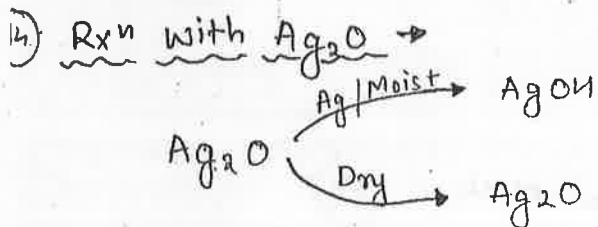 14) Rxⁿ with Ag₂O →
Ag/Moist → AgOH
Ag₂O
Dry → Ag₂O